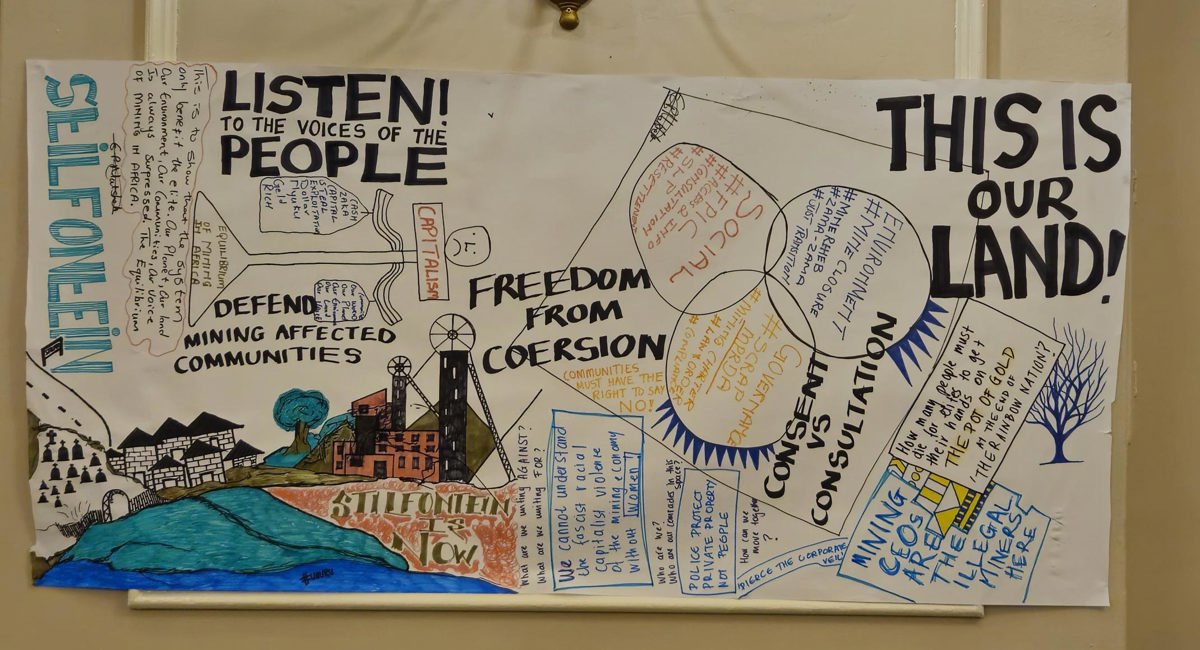 SEILFONEIN
This is to show that the system
only benefit the elite. Our Planet, Our land
Our Environment, Our Communities, Our Voice
Is always Surpressed. The Equilibrium
OF MINING IN AFRICA.
LISTEN!
TO THE VOICES OF THE
PEOPLE
CASH
ZAKA
CAPITAL
STEAL
EXPLOITATION
Dollar
Get
RICH
EQUILIBRIUM
OF MINING
IN AFRICA
CAPITALISM
DEFEND
MINING AFFECTED
COMMUNITIES
FREEDOM
FROM
COERSION
COMMUNITIES
MUST HAVE THE
RIGHT TO SAY
NO!
STILFONTEIN
IS
NOW
What are we uniting AGAINST?
What are we uniting FOR?
We cannot understand
the fascist racial
capitalist violence
of the mining economy
without Women
Who are we?
Who are our comrades in this
space?
POLICE PROTECT
PRIVATE PROPERTY
NOT PEOPLE
How can we
move together
?
PIERCE THE CORPORATE
VEIL
SOCIAL
#FPIC
#ACCESS 2 INFO
#CONSULTATION
#SLP
#RESETTLEMENT
ENVIRONMENT
#MINE CLOSURE
#MINE REHEB
#ZAMA-ZAMA
#JUST TRANSITION
GOVERNANCE
#SCRAP
MPRDA
#MINING CHARTER
#LAW & ORDER
#COMPLIANCE
CONSENT
VS
CONSULTATION
THIS IS
OUR
LAND!
How many people must
die for elites to get
their hands on
THE POT OF GOLD
AT THE END OF
THE RAINBOW NATION?
MINING
CEOS
ARE
THE
ILLEGAL
MINERS
HERE